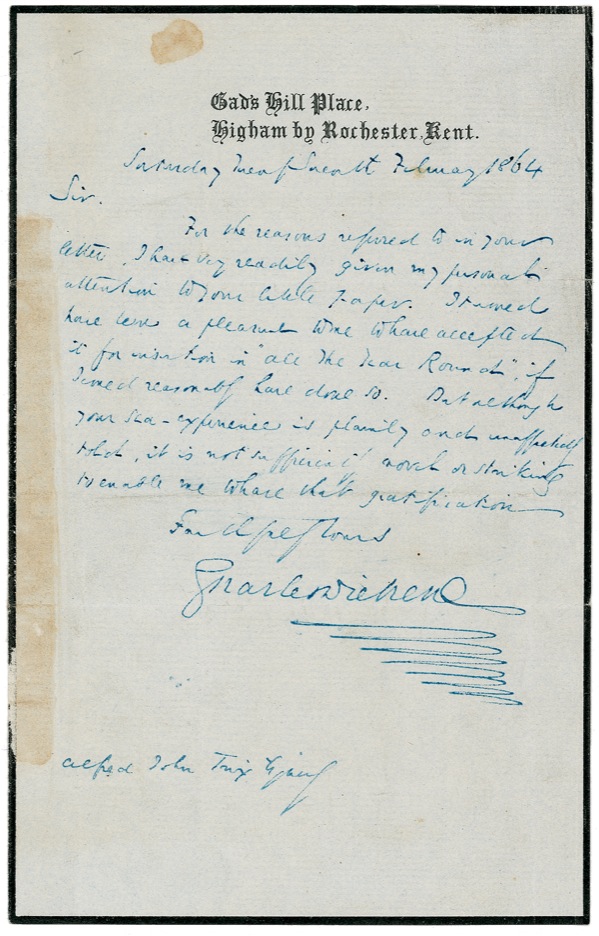 Gad's Hill Place,
Higham by Rochester, Kent.
Saturday Twenty Seventh February 1864
Sir.
For the reasons referred to in your
letter, I have very readily given my personal
attention to your little paper. It would
have been a pleasant to me to have accepted
it for insertion in "All The Year Round", if
I could reasonably have done so. But although
your sea-experience is plainly and unaffectedly
told, it is not sufficiently novel or striking
to enable me to have that gratification
Faithfully Yours
Charles Dickens
Alfred John